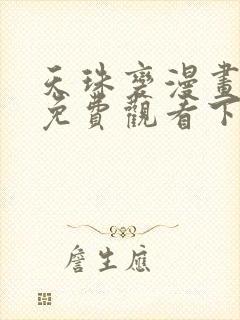 天珠變漫畫
免費觀看下
詹生應